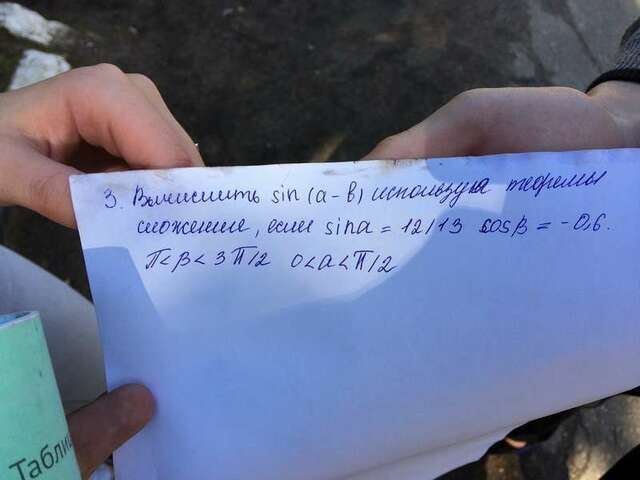 3. Вычислить sin (a-b) используя теоремы
сложение, если sina = 12/13 cosβ = -0,6.
π<β<3π/2 0<a<π/2
Табли